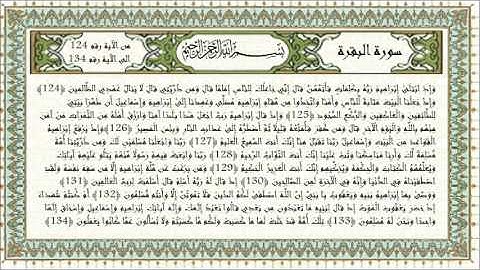 سورة البقرة
بسم الله الرحمن الرحيم
من الآية رقم 124
الى الآية رقم 134
وإذ ابتلى إبراهيم ربه بكلمات فأتمهن قال إني جاعلك للناس إماما قال ومن ذريتي قال لا ينال عهدي الظالمين ﴿124﴾
وإذ جعلنا البيت مثابة للناس وأمنا واتخذوا من مقام إبراهيم مصلى وعهدنا إلى إبراهيم وإسماعيل أن طهرا بيتي
للطائفين والعاكفين والركع السجود ﴿125﴾ وإذ قال إبراهيم رب اجعل هذا بلدا آمنا وارزق أهله من الثمرات من آمن
منهم بالله واليوم الآخر قال ومن كفر فأمتعه قليلا ثم أضطره إلى عذاب النار وبئس المصير ﴿126﴾ وإذ يرفع إبراهيم
القواعد من البيت وإسماعيل ربنا تقبل منا إنك أنت السميع العليم ﴿127﴾ ربنا واجعلنا مسلمين لك ومن ذريتنا أمة
مسلمة لك وأرنا مناسكنا وتب علينا إنك أنت التواب الرحيم ﴿128﴾ ربنا وابعث فيهم رسولا منهم يتلو عليهم آياتك
ويعلمهم الكتاب والحكمة ويزكيهم إنك أنت العزيز الحكيم ﴿129﴾ ومن يرغب عن ملة إبراهيم إلا من سفه نفسه ولقد
اصطفيناه في الدنيا وإنه في الآخرة لمن الصالحين ﴿130﴾ إذ قال له ربه أسلم قال أسلمت لرب العالمين ﴿131﴾
ووصى بها إبراهيم بنيه ويعقوب يا بني إن الله اصطفى لكم الدين فلا تموتن إلا وأنتم مسلمون ﴿132﴾ أم كنتم شهداء
إذ حضر يعقوب الموت إذ قال لبنيه ما تعبدون من بعدي قالوا نعبد إلهك وإله آبائك إبراهيم وإسماعيل وإسحاق إلها
واحدا ونحن له مسلمون ﴿133﴾ تلك أمة قد خلت لها ما كسبت ولكم ما كسبتم ولا تسألون عما كانوا يعملون ﴿134﴾